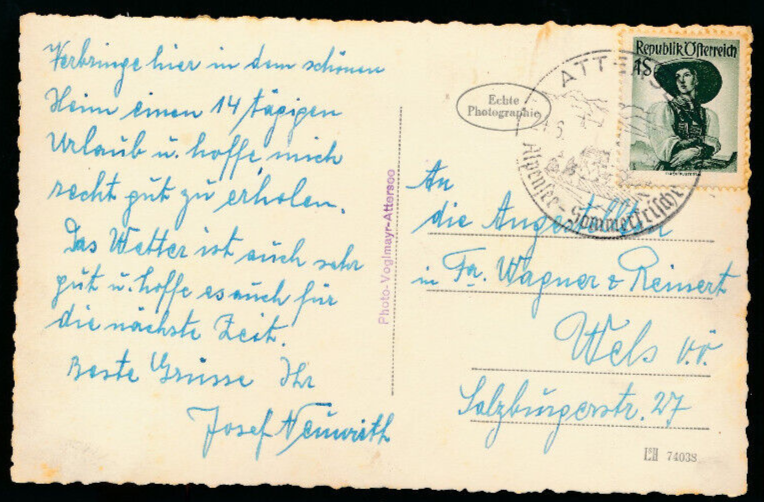 Verbringe hier in dem schönen
Heim einen 14 tägigen
Urlaub u. hoffe mich
recht gut zu erholen.
Das Wetter ist auch sehr
gut u. hoffe es auch für
die nächste Zeit.
Beste Grüsse Ihr
Josef Neuwirth
Photo-Voglmayr-Attersee
Echte
Photographie
Republik Österreich
1S
ATTERSEE
Alpensee-Sommerfrische
An
die Angestellten
in Fa. Wagner & Reinert
Wels o.ö.
Salzburgerstr. 27
74038